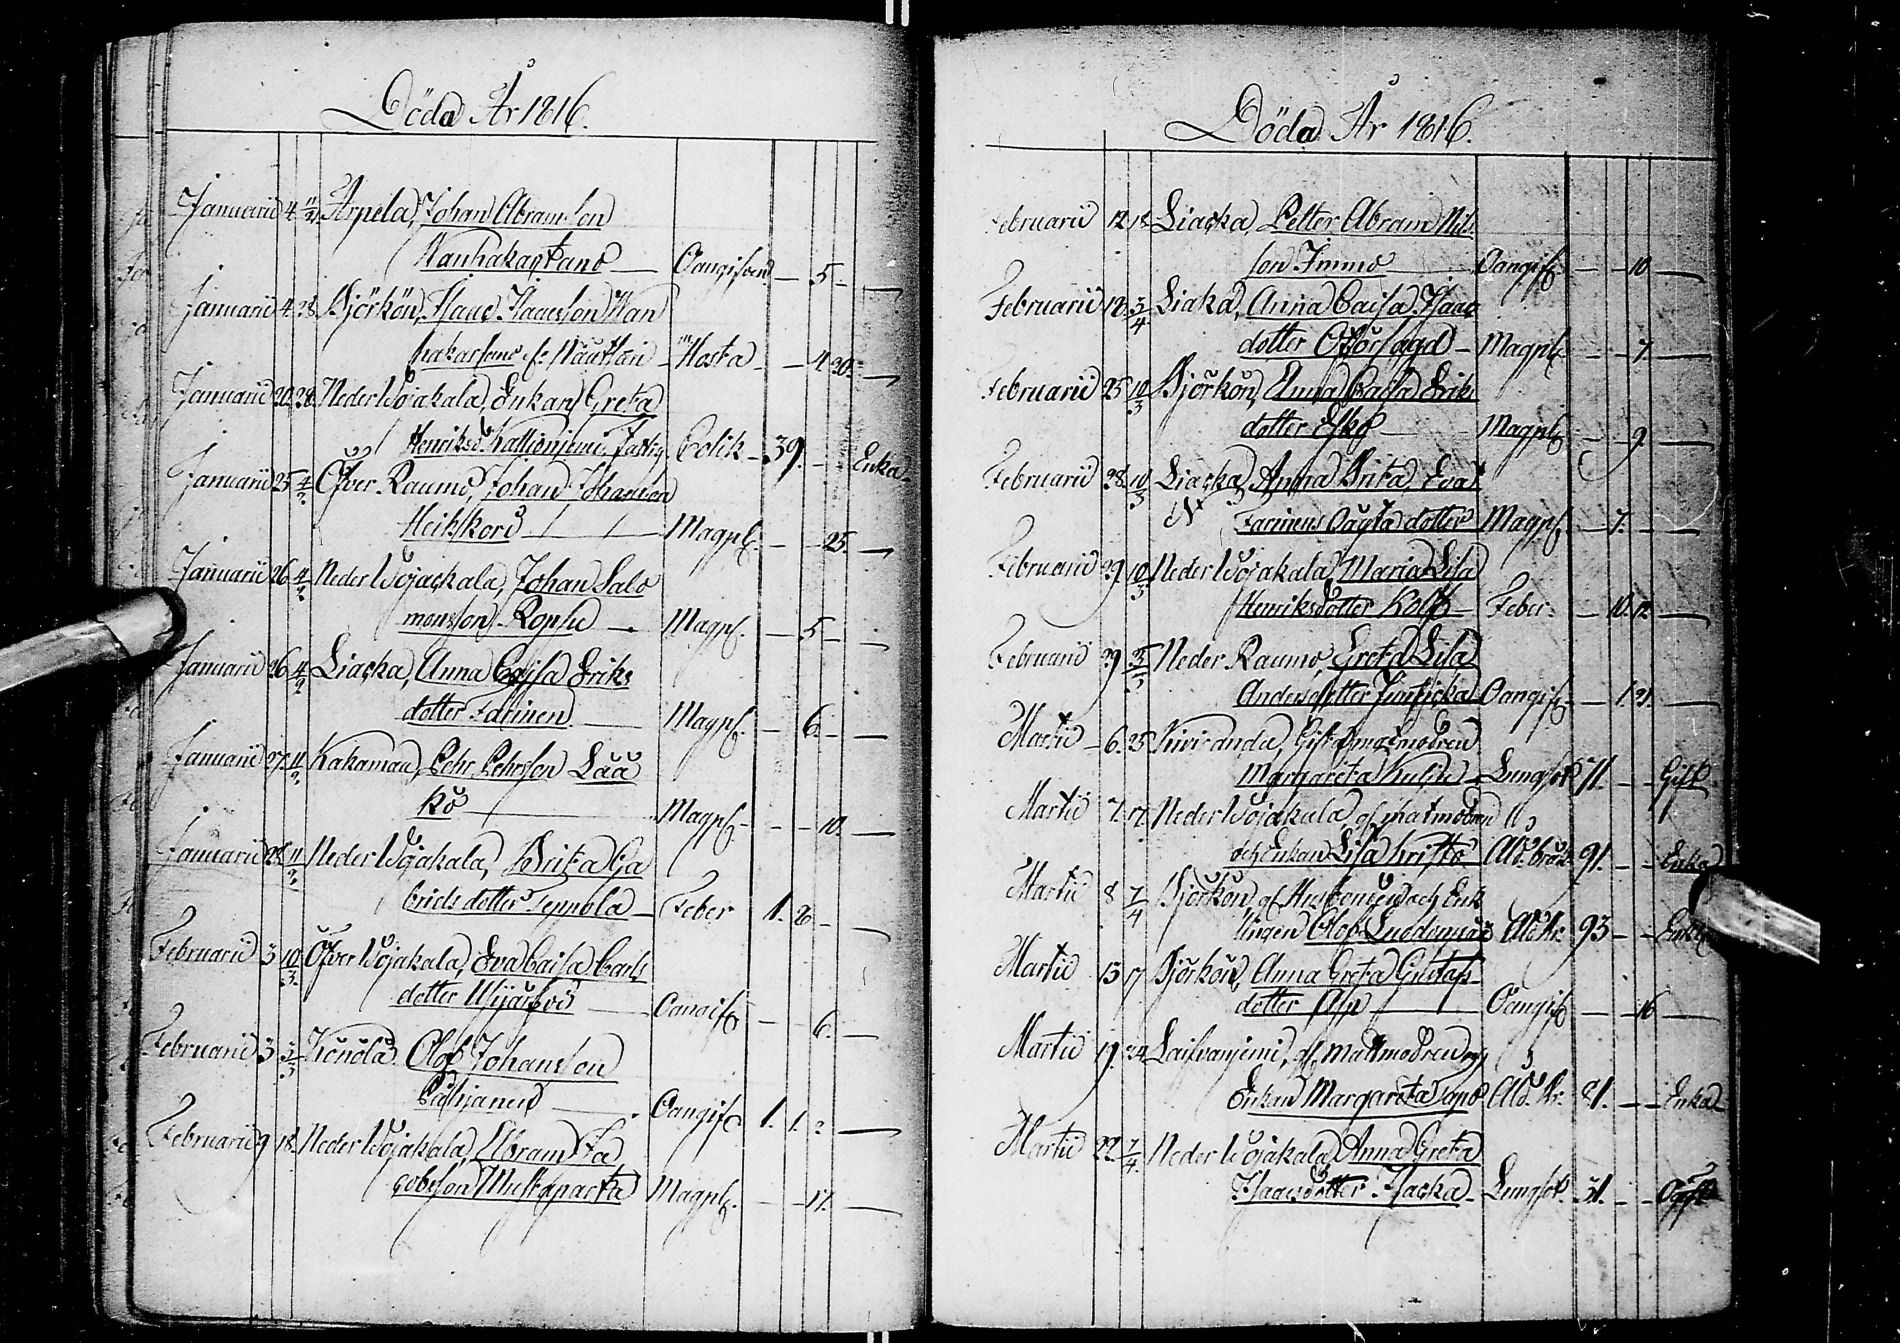 Döda År 1816.
Januarii 4 11/2 Arpela, Johan Abramsson
Wanhakartano — Oangifven — 5 —
Januarii 4 28 Björkön, Isaac Isaacsson Wan
— Hosta — 4 20 —
Januarii 20 28 Neder Wojakala, Enkan Greta
Henriksd. Kallioniemi, Colik — 39. — Enka
Januarii 25 4/2 Öfver Raumo, Johan Johansson
Heikkord — Magpl. — 25. —
Januarii 26 4/2 Neder Wojackala, Johan Salo
monsson Ropsu — Magpl. — 5 —
Januarii 26 4/2 Liacka, Anna Cajsa Eriks
dotter Farinen — Magpl. — 6 —
Januarii 27 11/2 Kakamaa, Pehr Pehrsson Laa
ko — Magpl. — 10 —
Januarii 28 11/2 Neder Wojakala, Brita Ga
briels dotter Teppola — Feber 1. 2 —
Februarii 3 10/3 Öfver Wojakala, Eva Caisa Carls
dotter — Oangifv. — 6. —
Februarii 3 3/3 Könölä Olof Johansson
Oangifv. 1. 1. 2 —
Februarii 9 18 Neder Wojakala, Abram Ja
cobsson Mustaparta Magpl. — 17. —
Döda År 1816.
Februarii 12 18 Liacka, Petter Abram Nils
son Immo — Oangifv. — 10 —
Februarii 13 3/4 Liaka, Anna Caisa Isaacs
dotter — Magpl. — 7 —
Februarii 25 10/3 Björkön, Anna Caisa Eriks
dotter Esko — Magpl. — 9 —
Februarii 28 10/3 Liacka, Anna Brita, Eva
Farinens Oägta dotter Magpl. — 7. —
Februarii 29 10/3 Neder Wojakala, Maria Lisa
Henriksdotter — Feber — 10. 12 —
Februarii 29 25/3 Neder Raumo, Greta Lisa
Andersdotter — Oangifv. — 1. 21. —
Martii 6 25 Kiviranda, Gift matmodren
Margareta Kulju — Lungsot 71. — Gift.
Martii 7 17 Neder Wojakala, af. matmodren
och Enkan Lisa Kristo Ald. bräck. 91. — Enka
Martii 8 7/4 Björkön af. Husbonden och Enk
lingen Olof Ald. Br. 93 — Enkling
Martii 13 17 Björkön, Anna Greta Gustafs
dotter — Oangifv. — 16 —
Martii 19 24 Laifvaniemi, af. Matmodren och
Enkan Margareta Ald. Br. 81. — Enka
Martii 22 7/4 Neder Wojakala, Anna Greta
Isaacsdotter Isacka — Lungsot. 31. — Ogift